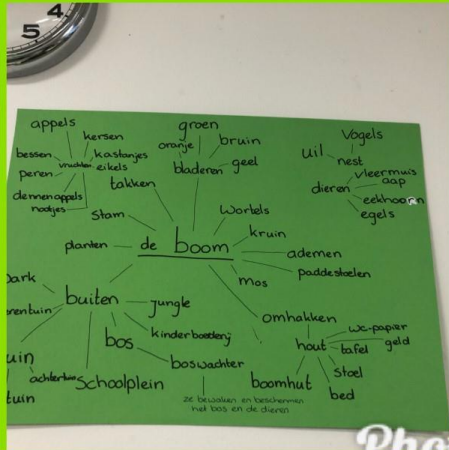 4
5
appels
kersen
bessen
vruchten
kastanjes
peren
eikels
dennenappels
nootjes
groen
oranje
bruin
bladeren
geel
Vogels
uil
nest
vleermuis
dieren
aap
eekhoorn
egels
takken
stam
wortels
kruin
planten
de boom
ademen
paddestoelen
mos
park
buiten
jungle
kinderboederij
bos
boswachter
ze bewaken en beschermen
het bos en de dieren
achtertuin
Schoolplein
tuin
omhakken
hout
wc-papier
tafel
geld
stoel
boomhut
bed
Pho